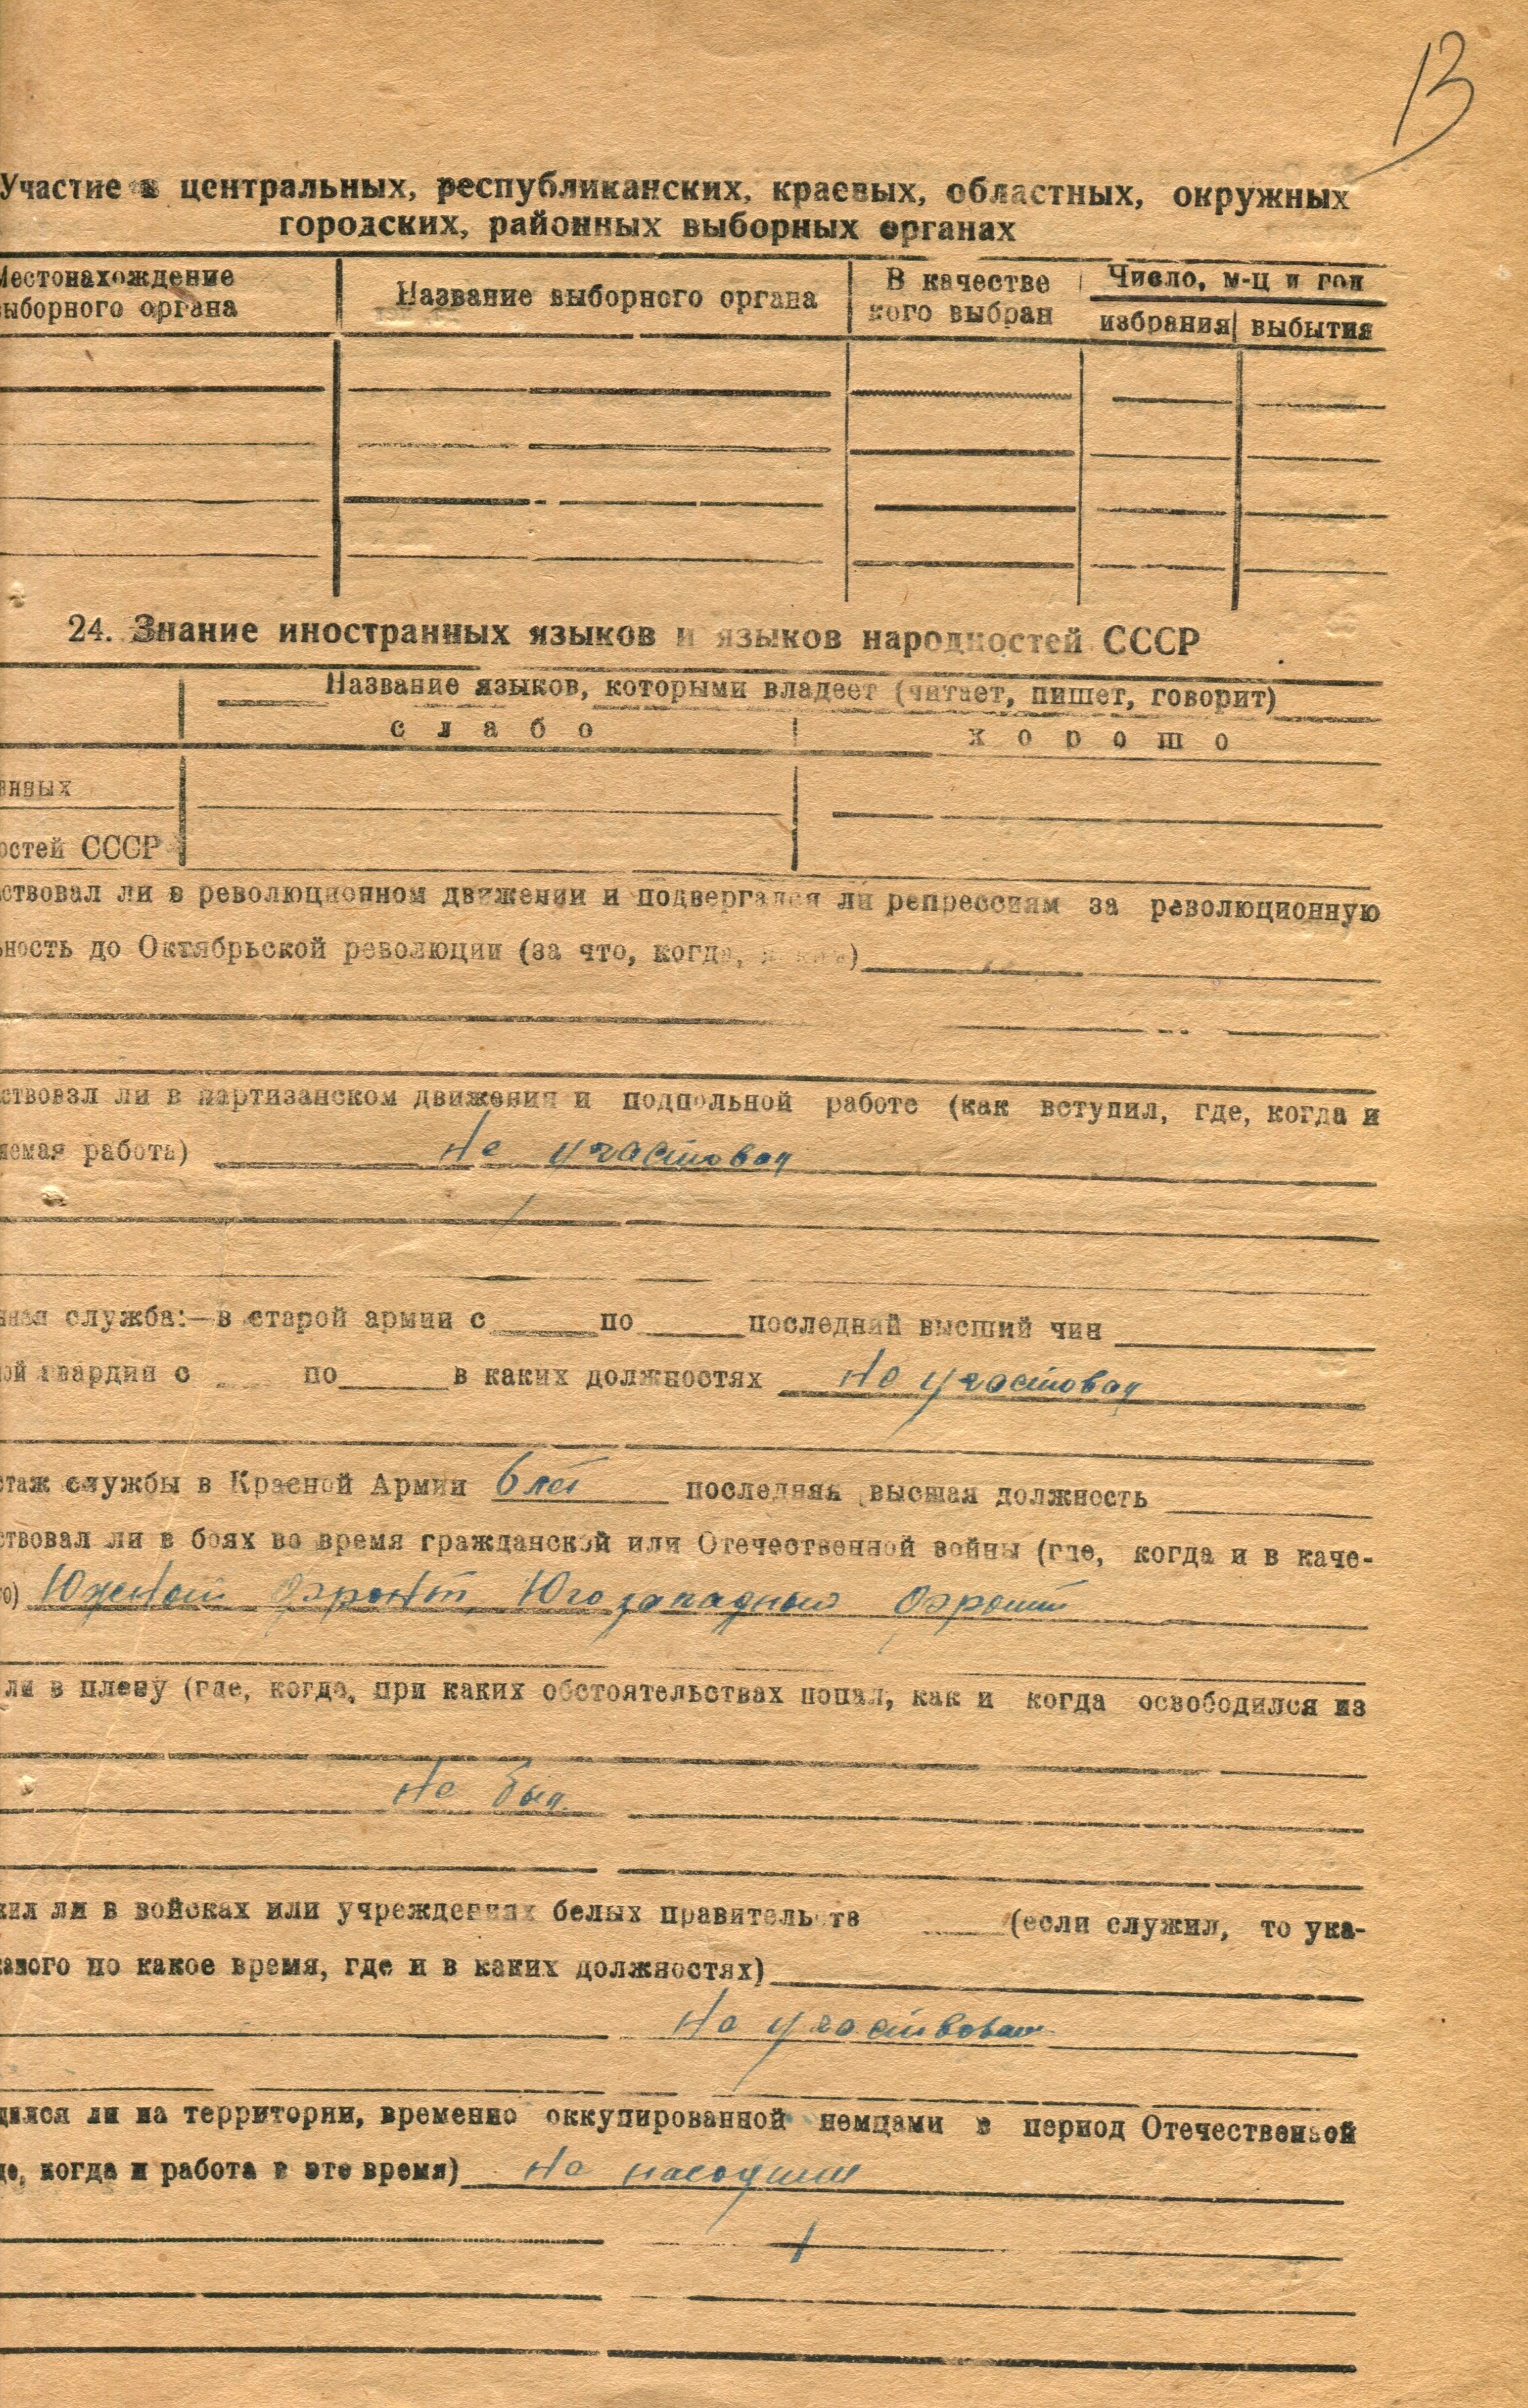 13
Участие в центральных, республиканских, краевых, областных, окружных
городских, районных выборных органах
Местонахождение
выборного органа
Название выборного органа
В качестве
кого выбран
Число, м-ц и год
избрания
выбытия
24. Знание иностранных языков и языков народностей СССР
Название языков, которыми владеет (читает, пишет, говорит)
слабо
хорошо
остей СССР
ствовал ли в революционном движении и подвергался ли репрессиям за революционную
ность до Октябрьской революции (за что, когда,
ствовал ли в партизанском движении и подпольной работе (как вступил, где, когда и
яемая работа) Не участовал
ная служба:—в старой армии с по последний высший чин
ой гвардии с по в каких должностях Не участовал
стаж службы в Красной Армии 6 лет последняя высшая должность
ствовал ли в боях во время гражданской или Отечественной войны (где, когда и в каче-
го) Южный фронт, Юго западный фронт
ли в плену (где, когда, при каких обстоятельствах попал, как и когда освободился из
Не был.
жил ли в войсках или учреждениях белых правительств (если служил, то ука-
какого по какое время, где и в каких должностях)
Не участвовал
дился ли на территории, временно оккупированной немцами в период Отечественной
де, когда и работа в это время) Не